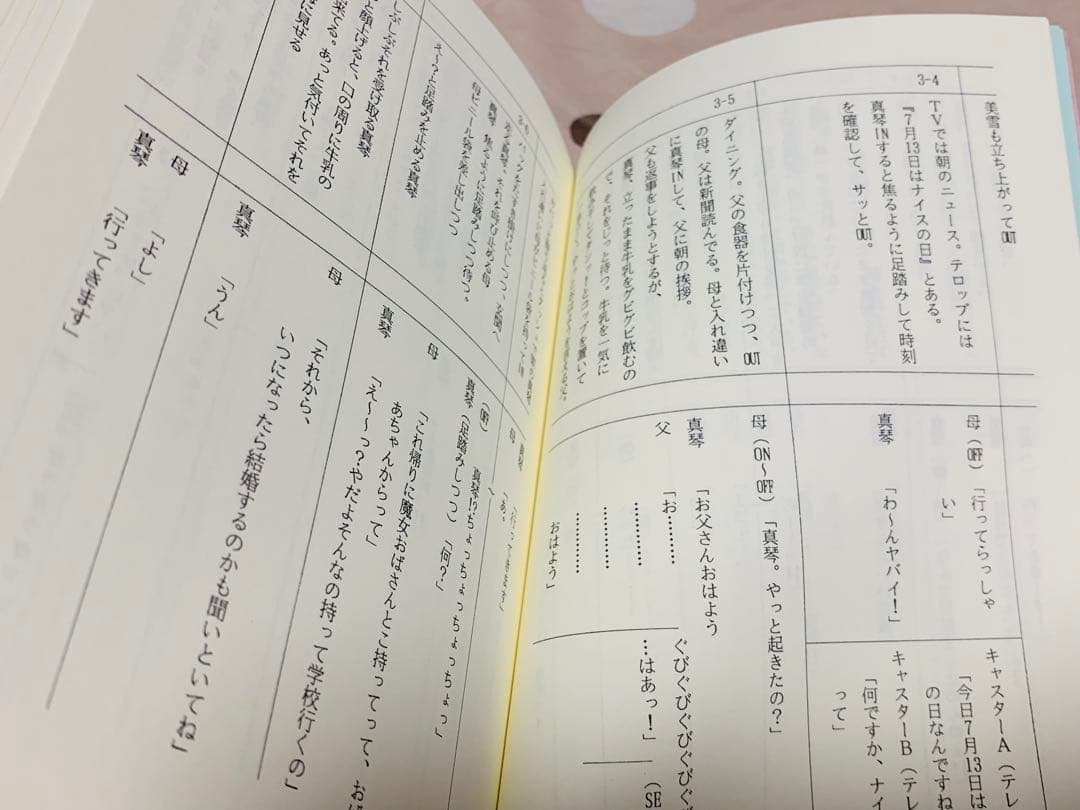 美雪も立ち上がってOUT
3-4
TVでは朝のニュース。テロップには
『7月13日はナイスの日』とある。
真琴INすると焦るように足踏みして時刻
を確認して、サッとOUT。
母(OFF)「行ってらっしゃ
い」
真琴「わ～んヤバイ!」
キャスターA(テレ
「今日7月13日は
の日なんですね
キャスターB(テレ
「何ですか、ナイ
って」
3-5
ダイニング。父の食器を片付けつつ、OUT
の母。父は新聞読んでる。母と入れ違い
に真琴INして、父に朝の挨拶。
父も返事をしようとするが、
真琴、立ったまま牛乳をグビグビ飲むの
で、それをじっと待つ。牛乳を一気に
母(ON～OFF)「真琴。やっと起きたの?」
真琴「お父さんおはよう
父「お…………
…………
…………
おはよう」
ぐびぐびぐびぐびぐ
…はあっ!」
(SE
3-6
走る真琴、それを呼び止める母
真琴、焦るように足踏みしつつ待つ。
母ビニール袋を差し出しつつ
え～?と足踏みを止める真琴
しぶしぶそれを受け取る真琴
と顔上げると、口の周りに牛乳の
る。あっと気付いてそれを
に見せる
真琴「行ってきます」
母「あ。
真琴!?ちょっちょっちょっちょっ」
真琴(足踏みしつつ)「何?」
母「これ帰りに魔女おばさんとこ持ってって、おば
あちゃんからって」
真琴「え～っ?やだよそんなの持って学校行くの」
母「それから、
いつになったら結婚するのかも聞いといてね」
真琴「うん」
母「よし」
真琴「行ってきます」